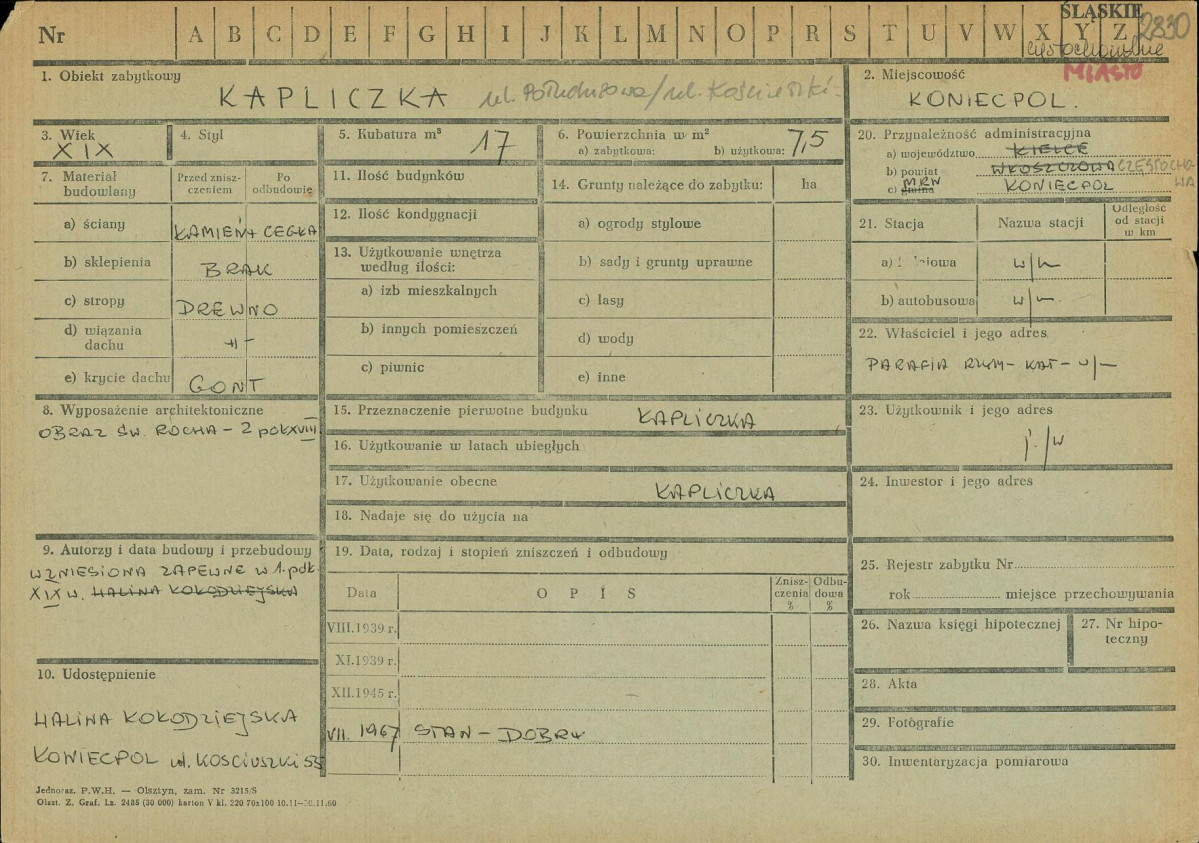 Nr A B C D E F G H I J K L M N O P R S T U V W X Y Z
ŚLĄSKIE
2830
częstochowskie
MIASTO
1. Obiekt zabytkowy
KAPLICZKA ul. Południowa/ul. Kościuszki
2. Miejscowość
KONIECPOL.
3. Wiek
XIX
4. Styl
5. Kubatura m³ 17
6. Powierzchnia w m²
a) zabytkowa: b) użytkowa: 7,5
20. Przynależność administracyjna
a) województwo KIELCE
b) powiat WŁOSZCZOWA CZĘSTOCHOWA
c) gmina MRN KONIECPOL
7. Materiał budowlany
Przed zniszczeniem
Po odbudowie
a) ściany KAMIEŃ + CEGŁA
b) sklepienia BRAK
c) stropy DREWNO
d) wiązania dachu -II-
e) krycie dachu GONT
11. Ilość budynków
12. Ilość kondygnacji
13. Użytkowanie wnętrza według ilości:
a) izb mieszkalnych
b) innych pomieszczeń
c) piwnic
14. Grunty należące do zabytku: ha
a) ogrody stylowe
b) sady i grunty uprawne
c) lasy
d) wody
e) inne
21. Stacja
Nazwa stacji
Odległość od stacji w km
a) w/m
b) autobusowa w/m
22. Właściciel i jego adres
PARAFIA RZYM-KAT-w/m
8. Wyposażenie architektoniczne
OBRAZ ŚW. ROCHA - 2 poł XVIII
15. Przeznaczenie pierwotne budynku KAPLICZKA
16. Użytkowanie w latach ubiegłych
17. Użytkowanie obecne KAPLICZKA
18. Nadaje się do użycia na
23. Użytkownik i jego adres
j./w
24. Inwestor i jego adres
9. Autorzy i data budowy i przebudowy
WZNIESIONA ZAPEWNE W 1. poł.
XIX w. HALINA KOŁODZIEJSKA
19. Data, rodzaj i stopień zniszczeń i odbudowy
Data
OPIS
Zniszczenia %
Odbudowa %
VIII.1939 r.
XI.1939 r.
XII.1945 r.
VII. 1967 STAN - DOBRY
25. Rejestr zabytku Nr
rok miejsce przechowywania
26. Nazwa księgi hipotecznej
27. Nr hipoteczny
28. Akta
29. Fotografie
30. Inwentaryzacja pomiarowa
10. Udostępnienie
HALINA KOŁODZIEJSKA
KONIECPOL ul. KOSCIUSZKI 55
Jednoraz. P.W.H. — Olsztyn, zam. Nr 3215/S
Olszt. Z. Graf. Lz. 2485 (30 000) karton V kl. 220 70x100